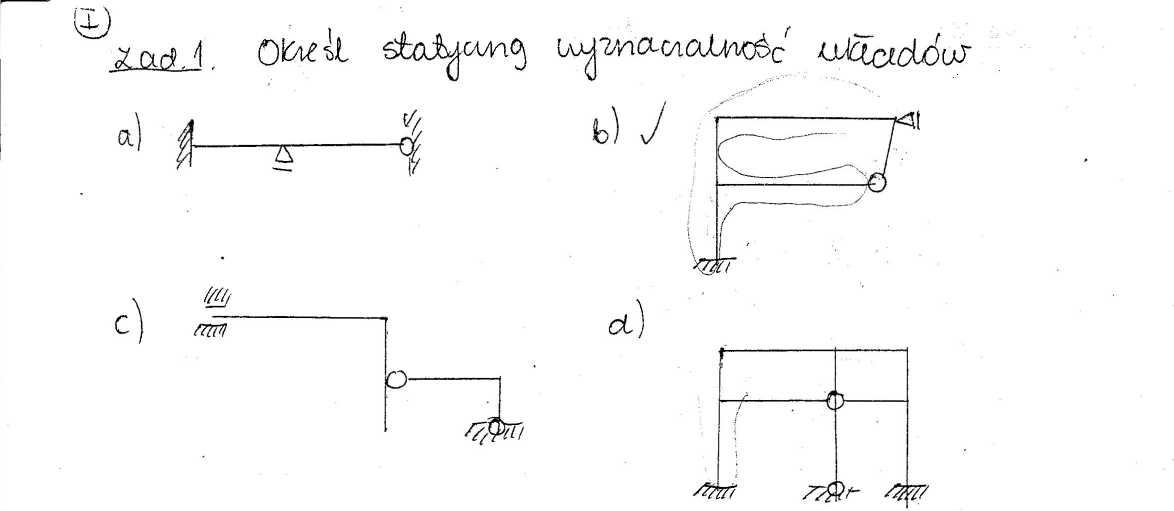 I
zad.1. Określ statyczną wyznaczalność układów
a)
b) ✓
c)
d)